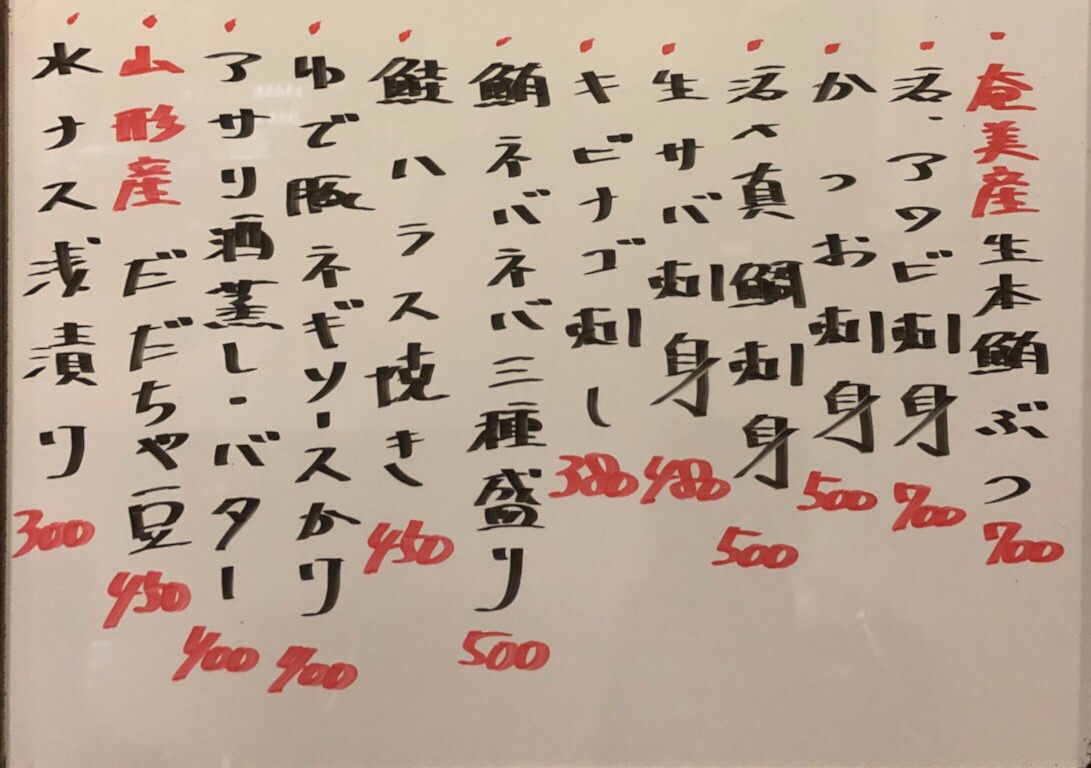 ・奄美産 生本鮪ぶつ 700
・活・アワビ刺身 700
・かつお刺身 500
・活〆真鯛刺身 500
・生サバ刺身 480
・キビナゴ刺し 380
・鮪ネバネバ三種盛り 500
・鮭ハラス焼き 450
・ゆで豚ネギソースかり 400
・アサリ酒蒸し・バター 400
・山形産 だだちゃ豆 450
・水ナス浅漬り 300